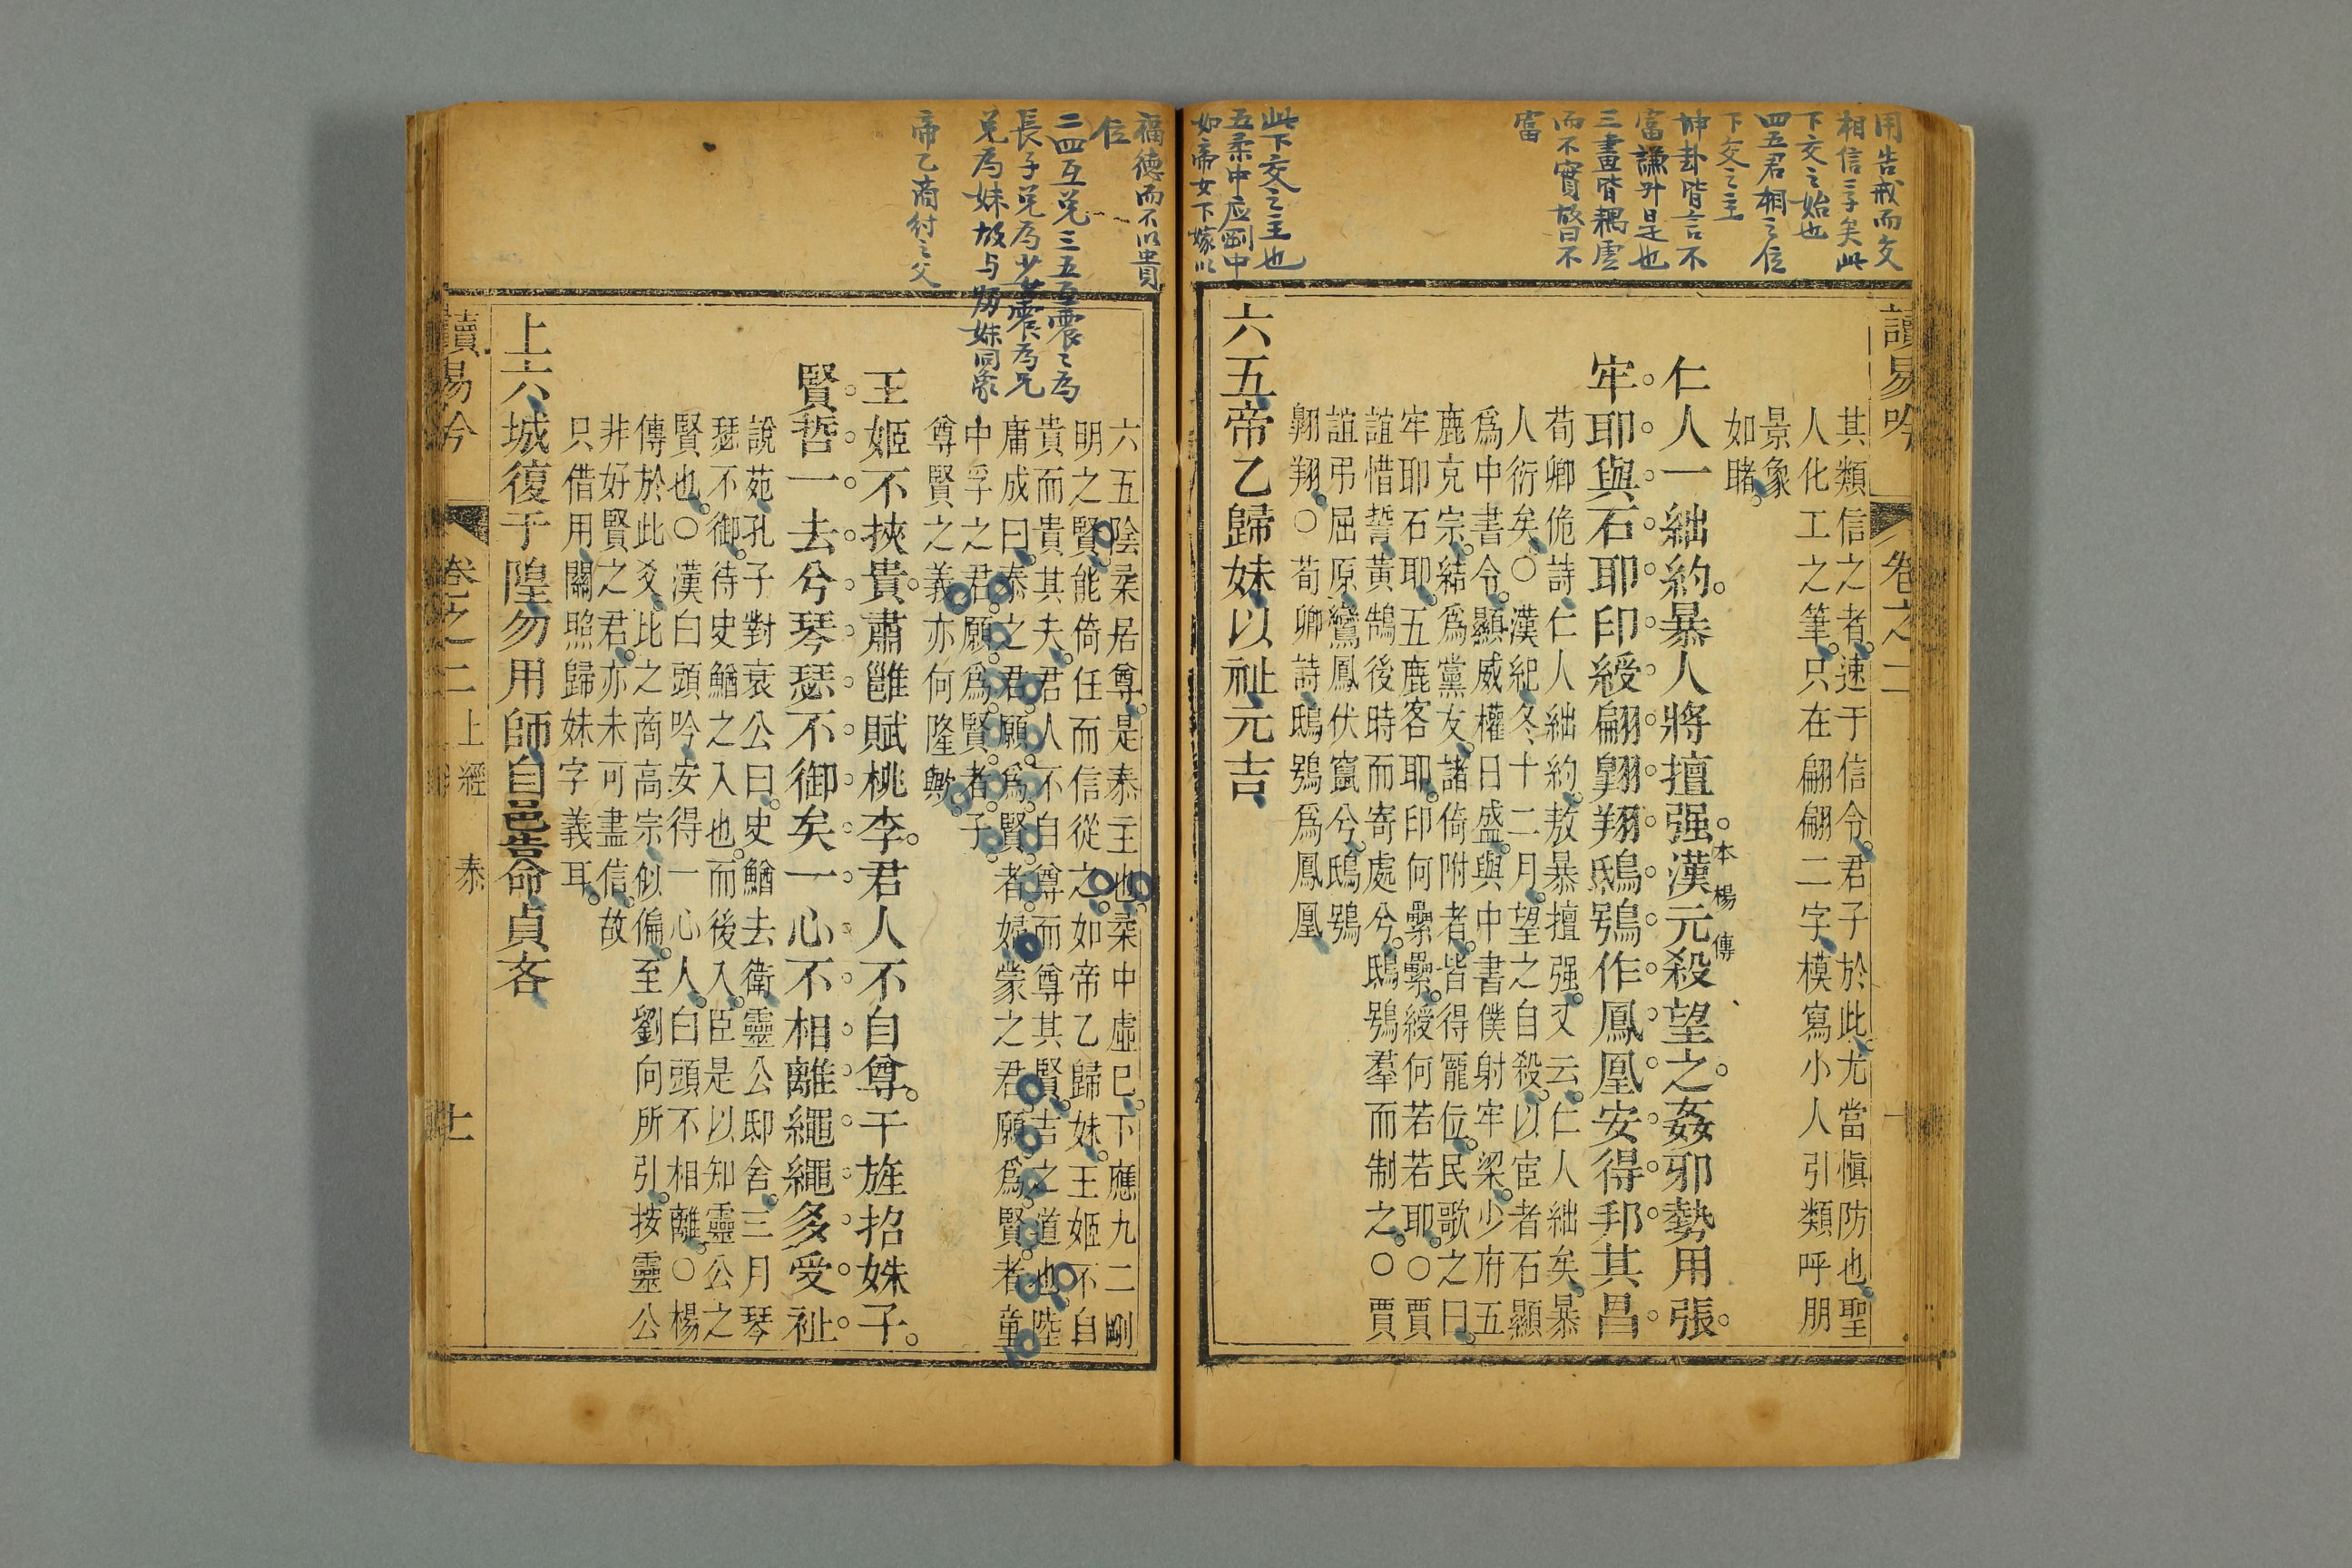 用告戒而交
相信孚矣此
下交之始也
四五君相之位
下交之主
坤卦皆言不
富謙升是也
三畫皆耦虛
而不實故曰不
富
此下交之主也
五柔中应剛中
如帝女下嫁以
讀易吟
卷之二
其類信之者速于信令君子於此尤當慎防也聖
人化工之筆只在翩翩二字模寫小人引類呼朋
景象
如睹
仁人一絀約暴人將擅强漢元殺望之姦邪勢用張
本楊傳
牢耶與石耶印綬翩翺翔鴟鴞作鳳凰安得邦其昌
荀卿佹詩仁人絀約敖暴擅强又云仁人絀矣暴
人衍矣○漢紀冬十二月望之自殺以宦者石顯
爲中書令顯威權日盛與中書僕射牢梁少府五
鹿克宗結爲黨友諸倚附者皆得寵位民歌之曰
牢耶石耶五鹿客耶印何纍纍綬何若若耶○賈
誼惜誓黃鵠後時而寄處兮鴟鴞羣而制之○賈
誼弔屈原鸞鳳伏竄兮鴟鴞
翺翔○荀卿詩鴟鴞爲鳳凰
六五帝乙歸妹以祉元吉
福德而不以貴
位
二四互兌三五互震之為
長子兌為少女震為兄
兌為妹故与歸妹同象
帝乙商紂之父
六五陰柔居尊是泰主也柔中虛已下應九二剛
明之賢能倚任而信從之如帝乙歸妹王姬不自
貴而貴其夫君人不自尊而尊其賢吉之道也陸
庸成曰泰之君願爲賢者婦蒙之君願爲賢者童
中孚之君願爲賢者子
尊賢之義亦何隆歟
王姬不挾貴肅雝賦桃李君人不自尊干旌招姝子
賢哲一去兮琴瑟不御矣一心不相離繩繩多受祉
說苑孔子對哀公曰史鰌去衛靈公邸舍三月琴
瑟不御待史鰌之入也而後入臣是以知靈公之
賢也○漢白頭吟安得一心人白頭不相離○楊
傳於此爻比之商高宗似偏至劉向所引按靈公
非好賢之君亦未可盡信故
只借用關照歸妹字義耳
上六城復于隍勿用師自邑告命貞吝
讀易吟
卷之二
上經
泰
十一